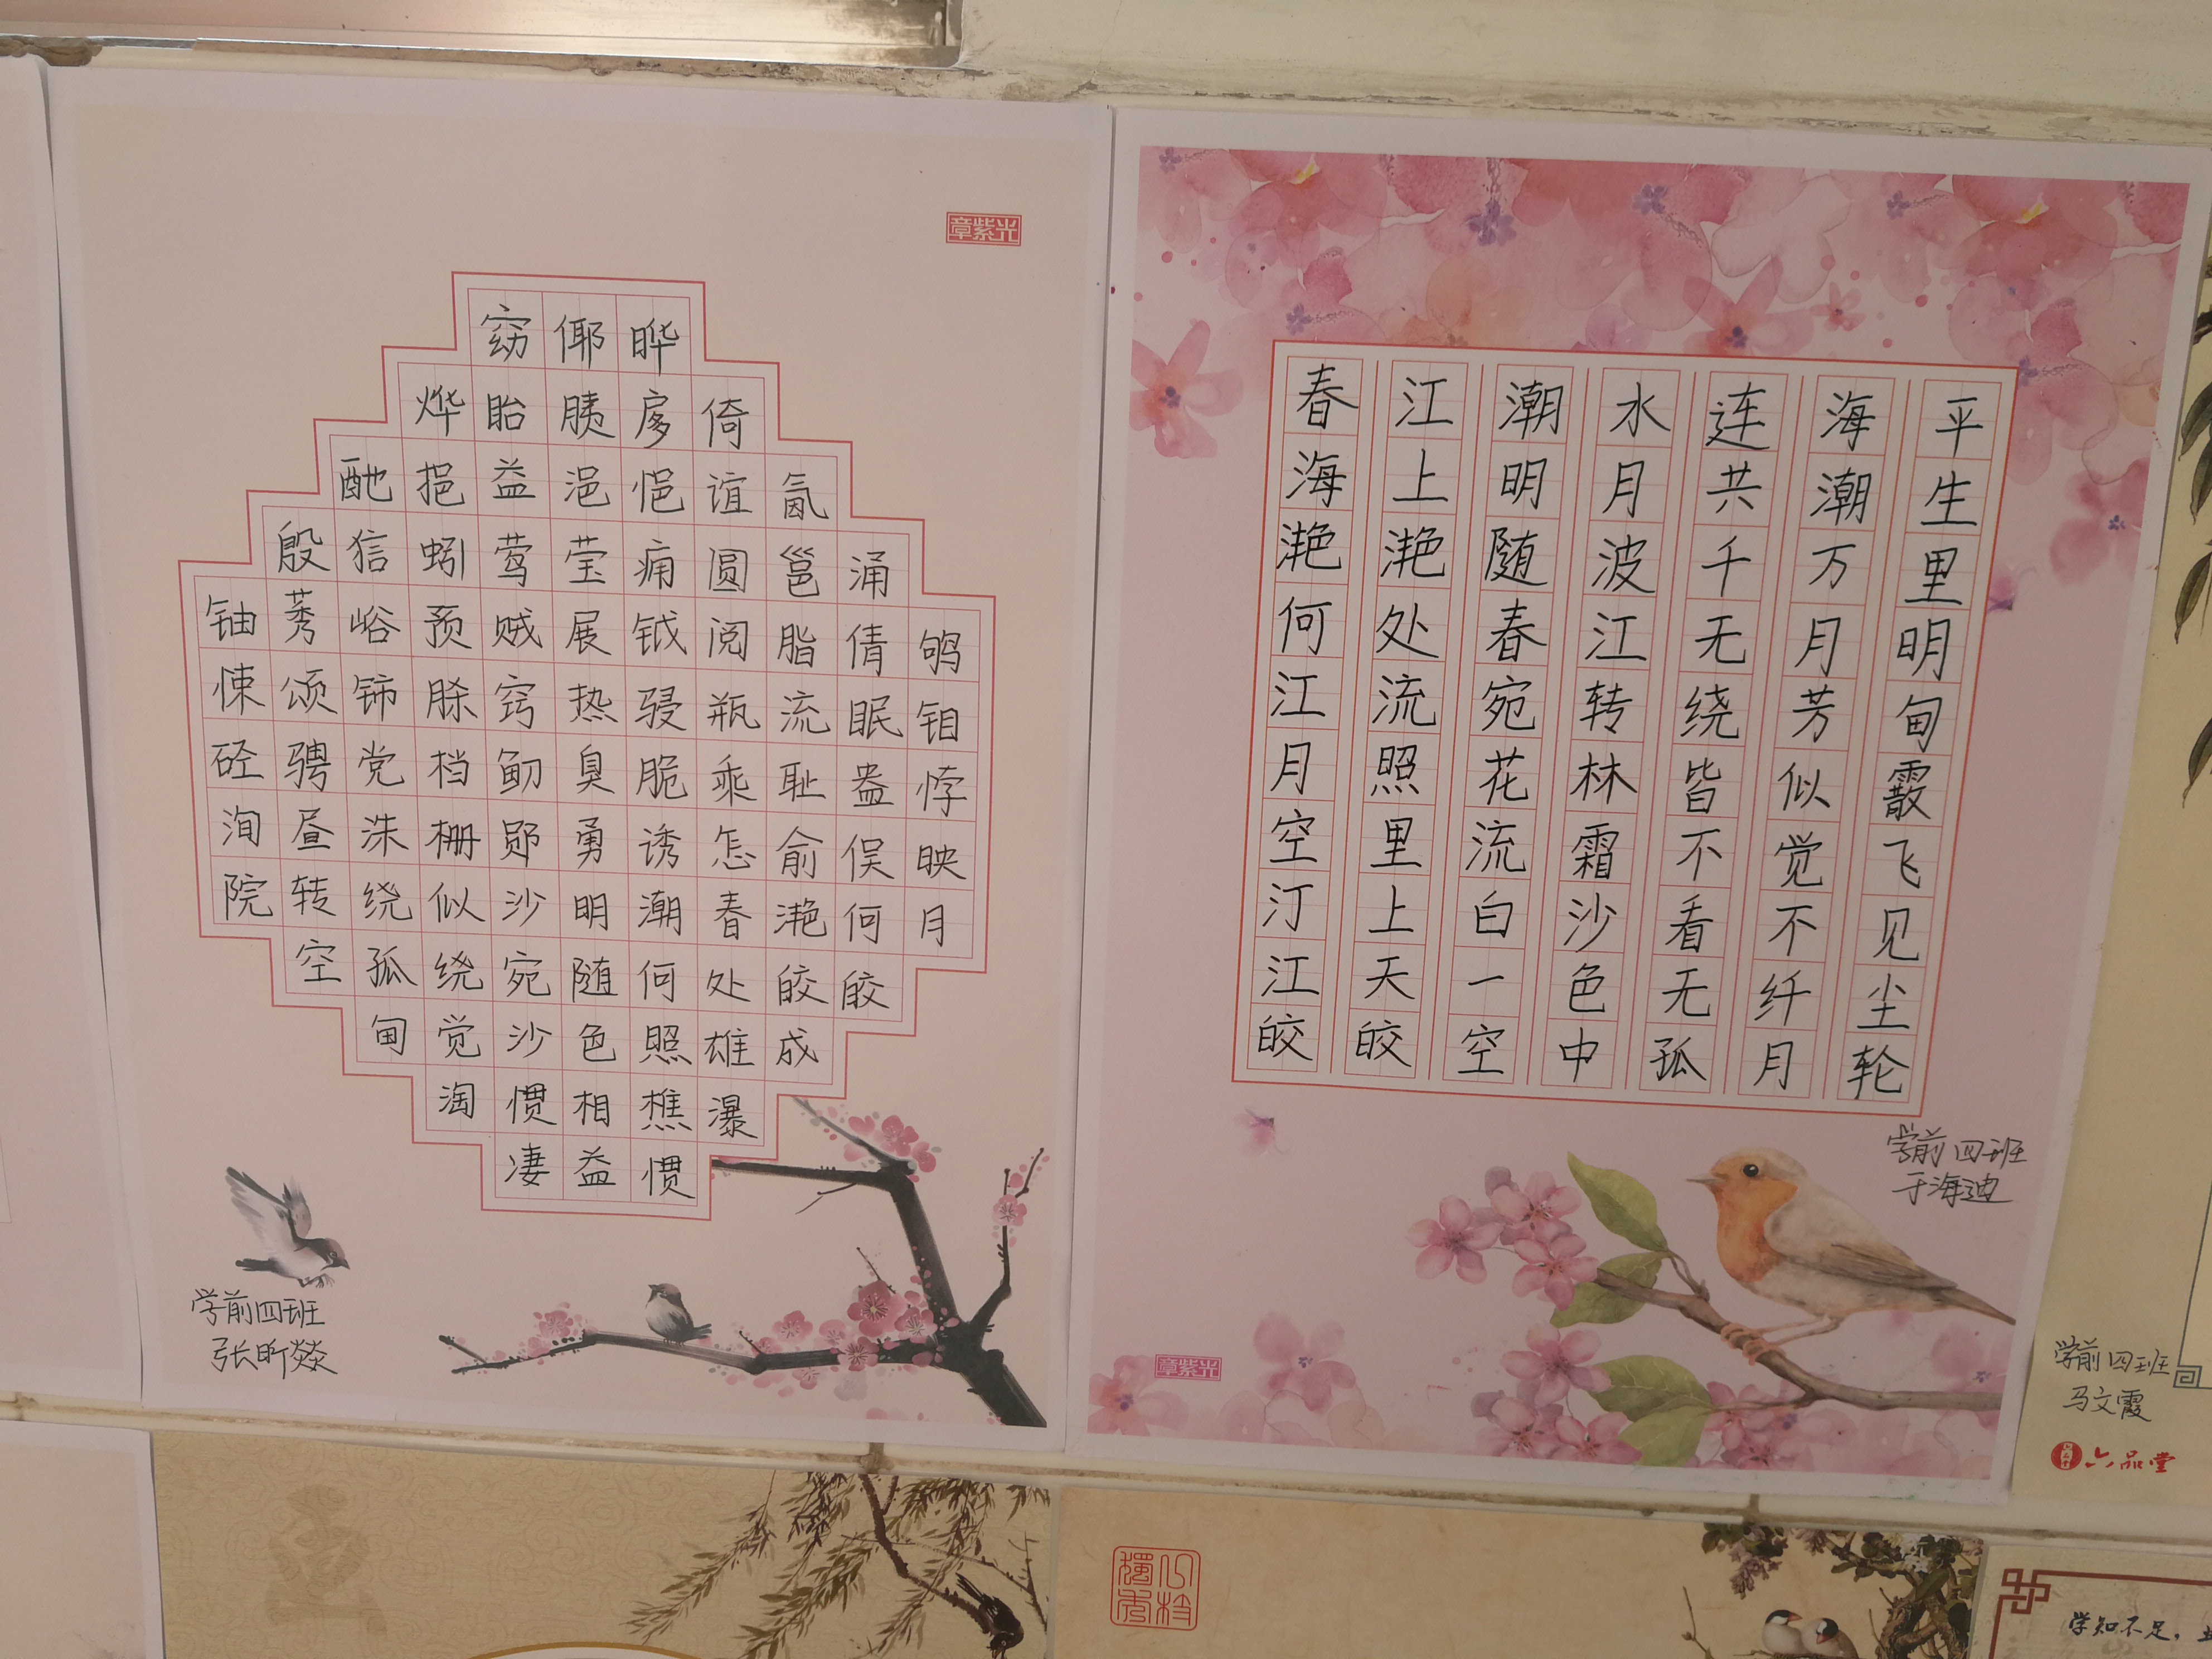 章紫光
窈倻晔
烨眙胰扅倚
酏挹益浥悒谊氤
殷狺蚓莺莹痈圆邕涌
铀莠峪预贼展钺阅脂倩鸲
悚颂铈脎窍热骎瓶流眠钼
硁骋党档鱽臭脆乘耻盎悖
洵昼洙栅郧勇诱怎俞俣映
院转绕似沙明潮春滟何月
空孤绕宛随何处皎皎
甸觉沙色照雄成
淘惯相樵瀑
凄益惯
学前四班
张昕燚
春江潮水连海平
海上明月共潮生
滟滟随波千万里
何处春江无月明
江流宛转绕芳甸
月照花林皆似霰
空里流霜不觉飞
汀上白沙看不见
江天一色无纤尘
皎皎空中孤月轮
学前四班
于海迪
章紫光
学前四班
马文霞
六品堂
学知不足，